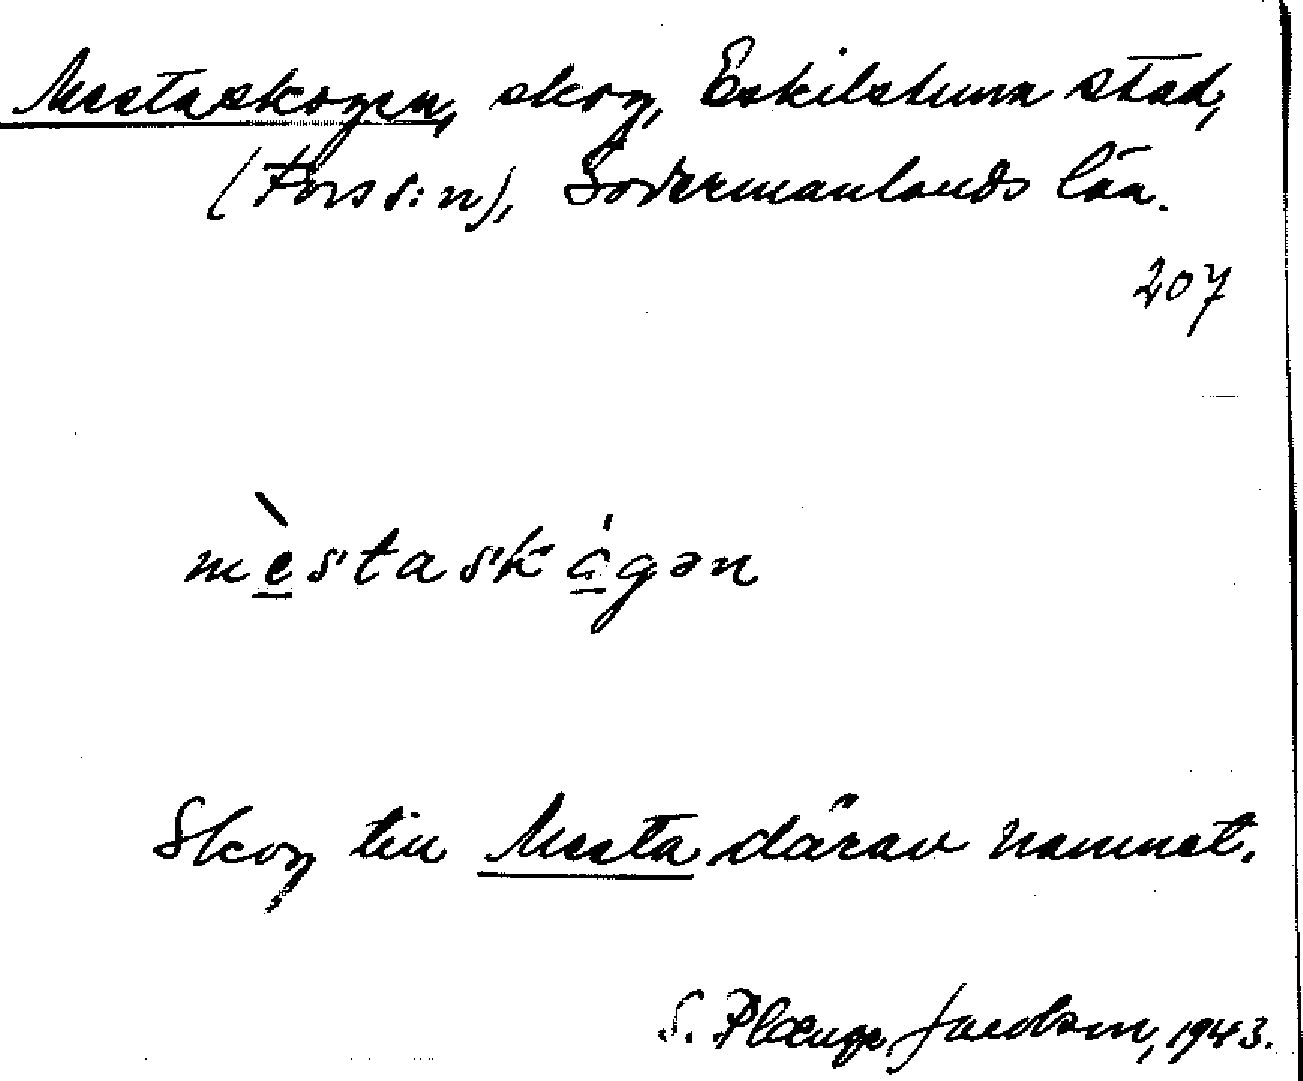 Mestaskogen, skog, Eskilstuna stad,
(Fors s:n), Södermanlands län.
207
mèstaskágən
Skog till Mesta därav namnet.
S. Plænge Jacobson, 1943.